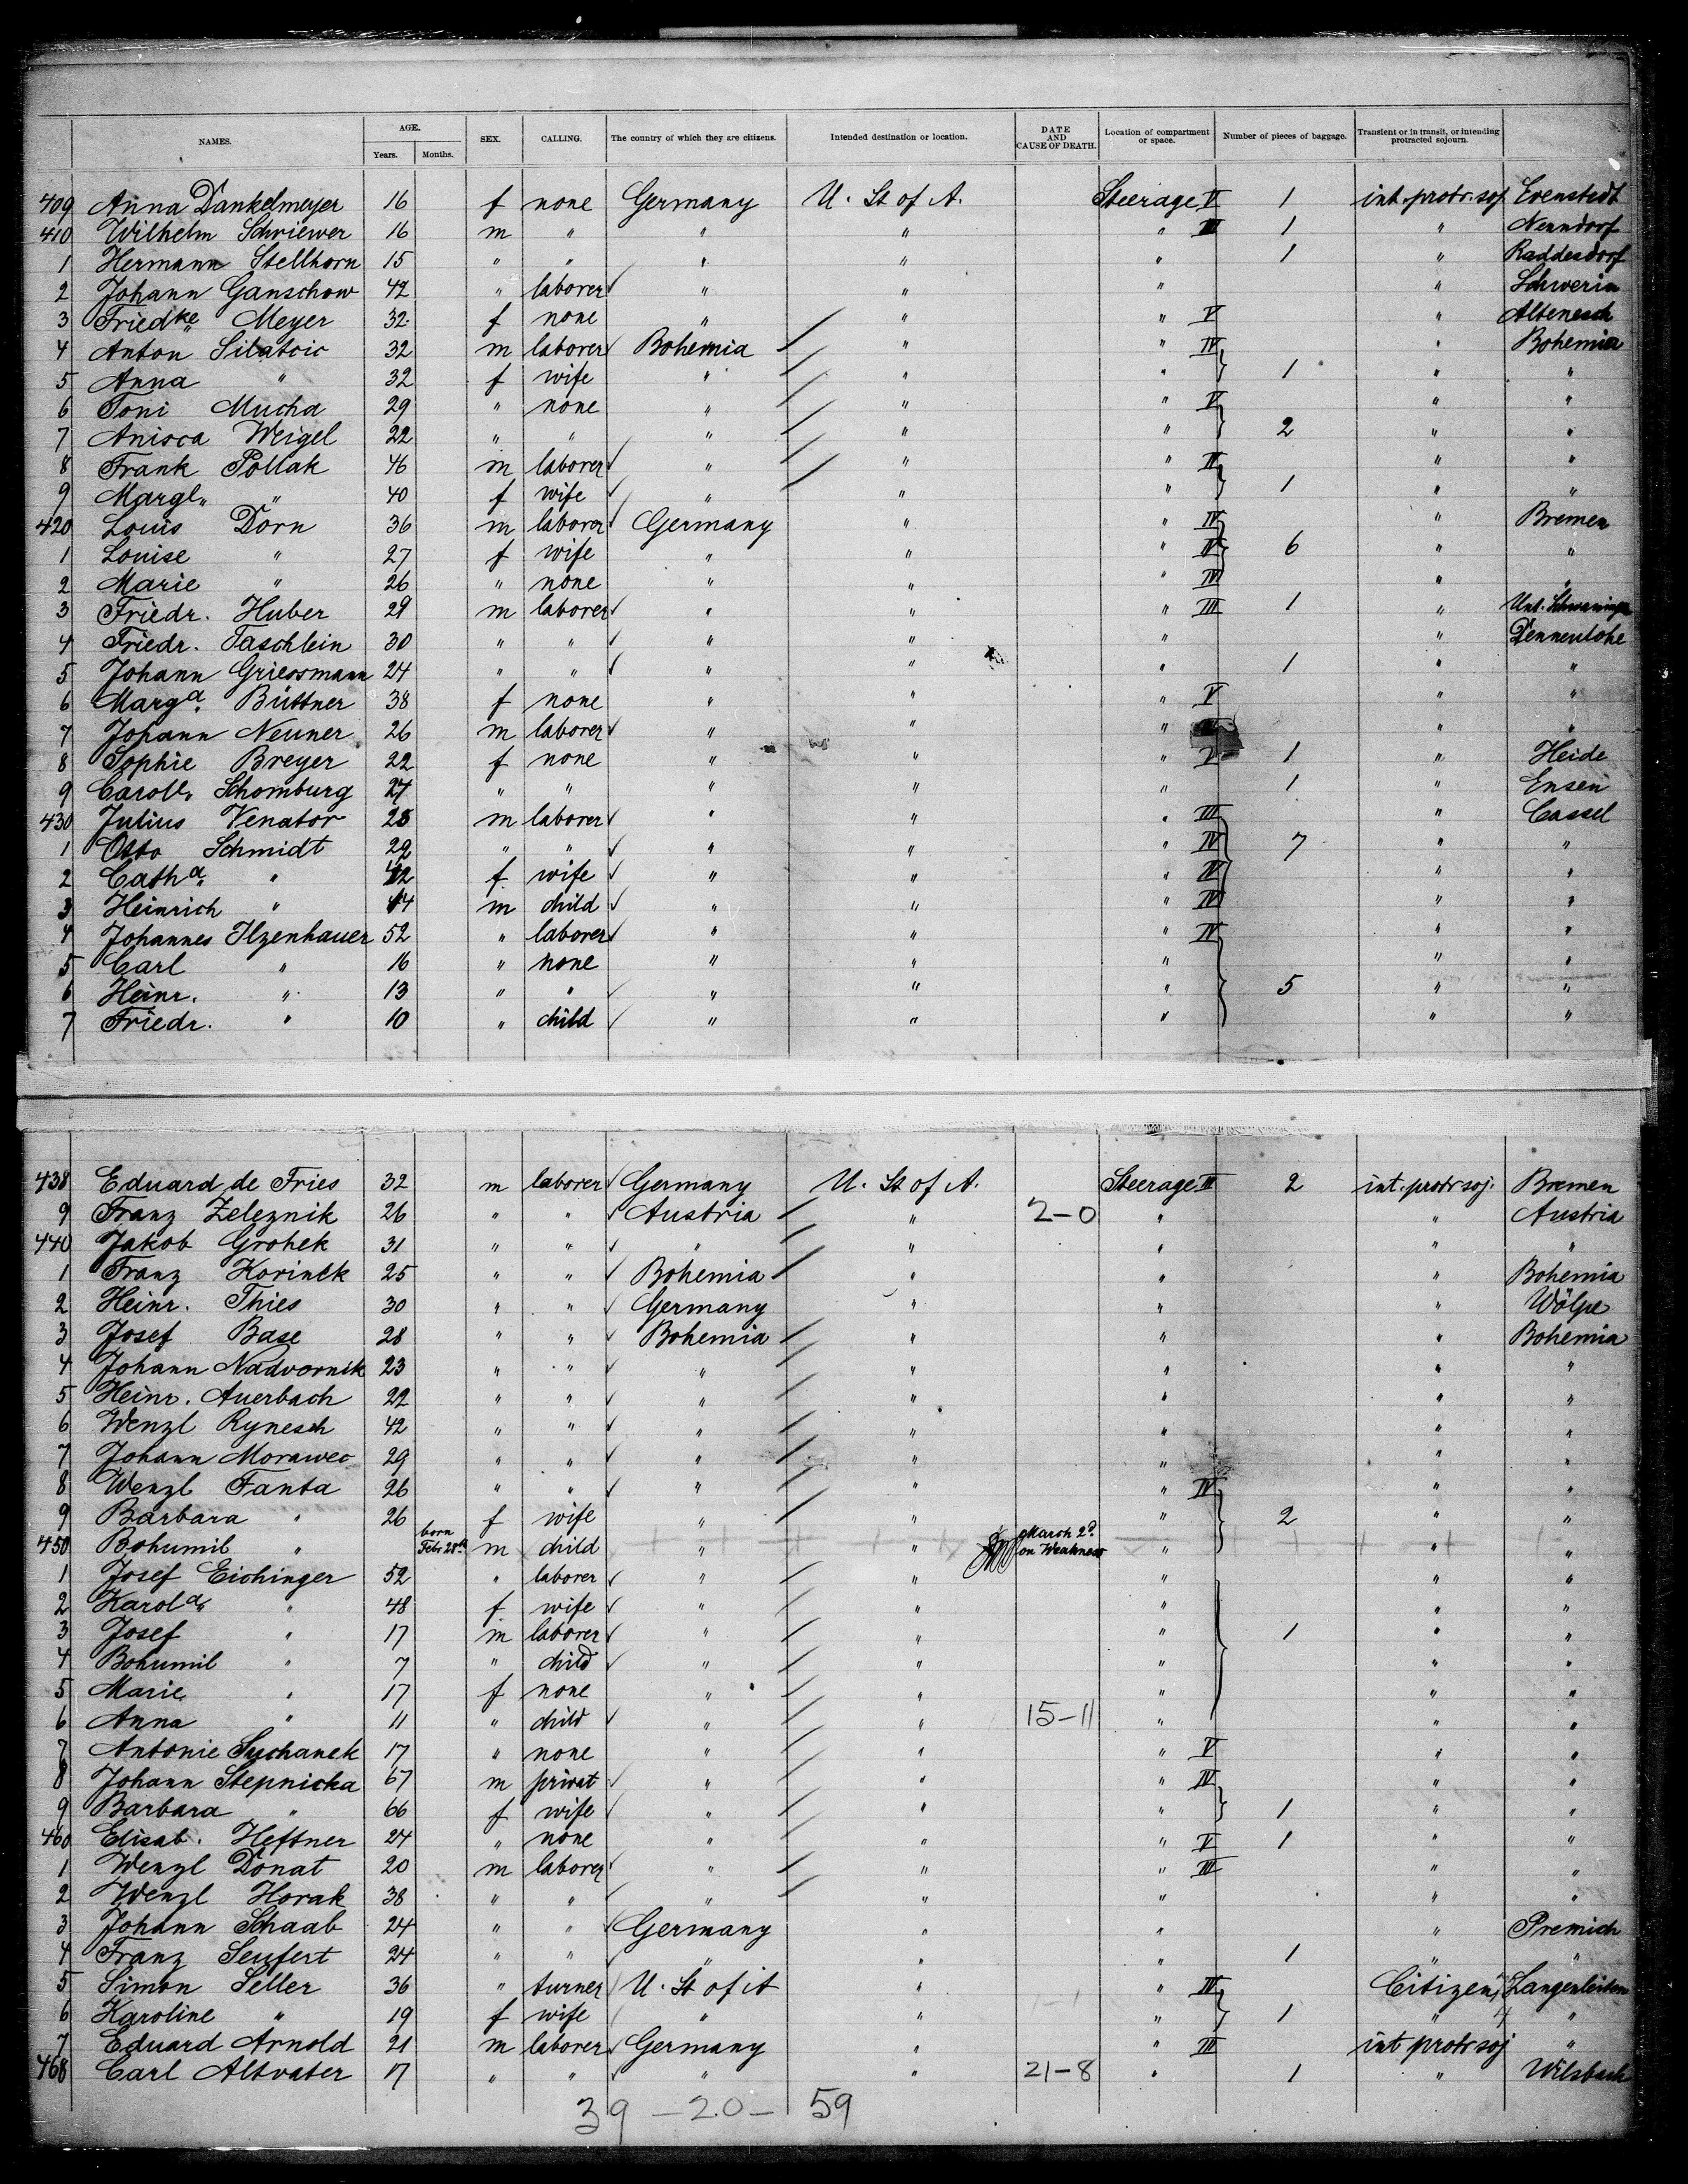 NAMES. AGE. Years. Months. SEX. CALLING. The country of which they are citizens. Intended destination or location. DATE AND CAUSE OF DEATH. Location of compartment or space. Number of pieces of baggage. Transient or in transit, or intending protracted sojourn.
409 Anna Dankelmeyer 16 f none Germany U. St of A. Steerage V 1 int. protr. soj. Evenstedt
410 Wilhelm Schriewer 16 m " " " " III 1 " Nenndorf
1 Hermann Stellhorn 15 " " " " " 1 " Raddesdorf
2 Johann Ganschow 42 " laborer " " " " Schwerin
3 Friedke Meyer 32 f none " " " V " Altenesch
4 Anton Silatcic 32 m laborer Bohemia " " IV " Bohemia
5 Anna " 32 f wife " " " 1 " "
6 Toni Mucha 29 " none " " " V " "
7 Anisca Weigel 22 " " " " " 2 " "
8 Frank Pollak 46 m laborer " " " IV " "
9 Margt. " 40 f wife " " " 1 " "
420 Louis Dorn 36 m laborer Germany " " IV " Bremen
1 Louise " 27 f wife " " " IV 6 " "
2 Marie " 26 " none " " " IV " "
3 Friedr. Huber 29 m laborer " " " III 1 " Unt. Schwaningen
4 Friedr. Taschlein 30 " " " " " " Dennenlohe
5 Johann Griessmann 24 " " " " " 1 " "
6 Marga. Büttner 38 f none " " " V " "
7 Johann Neuner 26 m laborer " " " " "
8 Sophie Breyer 22 f none " " " V 1 " Heide
9 Carole. Schomburg 27 " " " " " 1 " Ensen
430 Julius Venator 28 m laborer " " " III " Cassel
1 Otto Schmidt 29 " " " " " IV 7 " "
2 Catha. " f wife " " " IV " "
3 Heinrich " m child " " " IV " "
4 Johannes Ilzenhauer 52 " laborer " " " IV " "
5 Carl " 16 " none " " " " "
6 Heinr. " 13 " " " " " 5 " "
7 Friedr. " 10 " child " " " " "
438 Eduard de Fries 32 m laborer Germany U. St of A. Steerage III 2 int. protr soj. Bremen
9 Franz Zeleznik 26 " " Austria " 2-0 " " Austria
440 Jakob Grohek 31 " " " " " " "
1 Franz Korinek 25 " " Bohemia " " " Bohemia
2 Heinr. Thies 30 " " Germany " " " Wölpe
3 Josef Base 28 " " Bohemia " " " Bohemia
4 Johann Nadvornik 23 " " " " " " "
5 Heinr. Auerbach 22 " " " " " " "
6 Wenzl Rynesch 42 " " " " " " "
7 Johann Morawec 29 " " " " " " "
8 Wenzl Fanta 26 " " " " " IV " "
9 Barbara " 26 f wife " " " 2 " "
450 Bohumil " born Febr 28th m child " " March 2d on Weakness " " "
1 Josef Eichinger 52 " laborer " " " " "
2 Karola. " 48 f wife " " " " "
3 Josef " 17 m laborer " " " 1 " "
4 Bohumil " 7 " child " " " " "
5 Marie " 17 f none " " " " "
6 Anna " 11 " child " " 15-11 " " "
7 Antonie Suchanek 17 " none " " " V " "
8 Johann Stepnicka 67 m privat " " " IV " "
9 Barbara " 66 f wife " " " 1 " "
460 Elisab. Heftner 24 " none " " " V 1 " "
1 Wenzl Donat 20 m laborer " " " III " "
2 Wenzl Horak 38 " " " " " " "
3 Johann Schaab 24 " " Germany " " " Premich
4 Franz Seufert 24 " " " " " 1 " "
5 Simon Seller 36 " turner U. St of A " " III Citizen Langenleiten
6 Karoline " 19 f wife " " 1-1 " 1 " "
7 Eduard Arnold 21 m laborer Germany " " III int protr soj "
468 Carl Altvater 17 " " " " 21-8 " 1 " Wilsbach
39 - 20 - 59